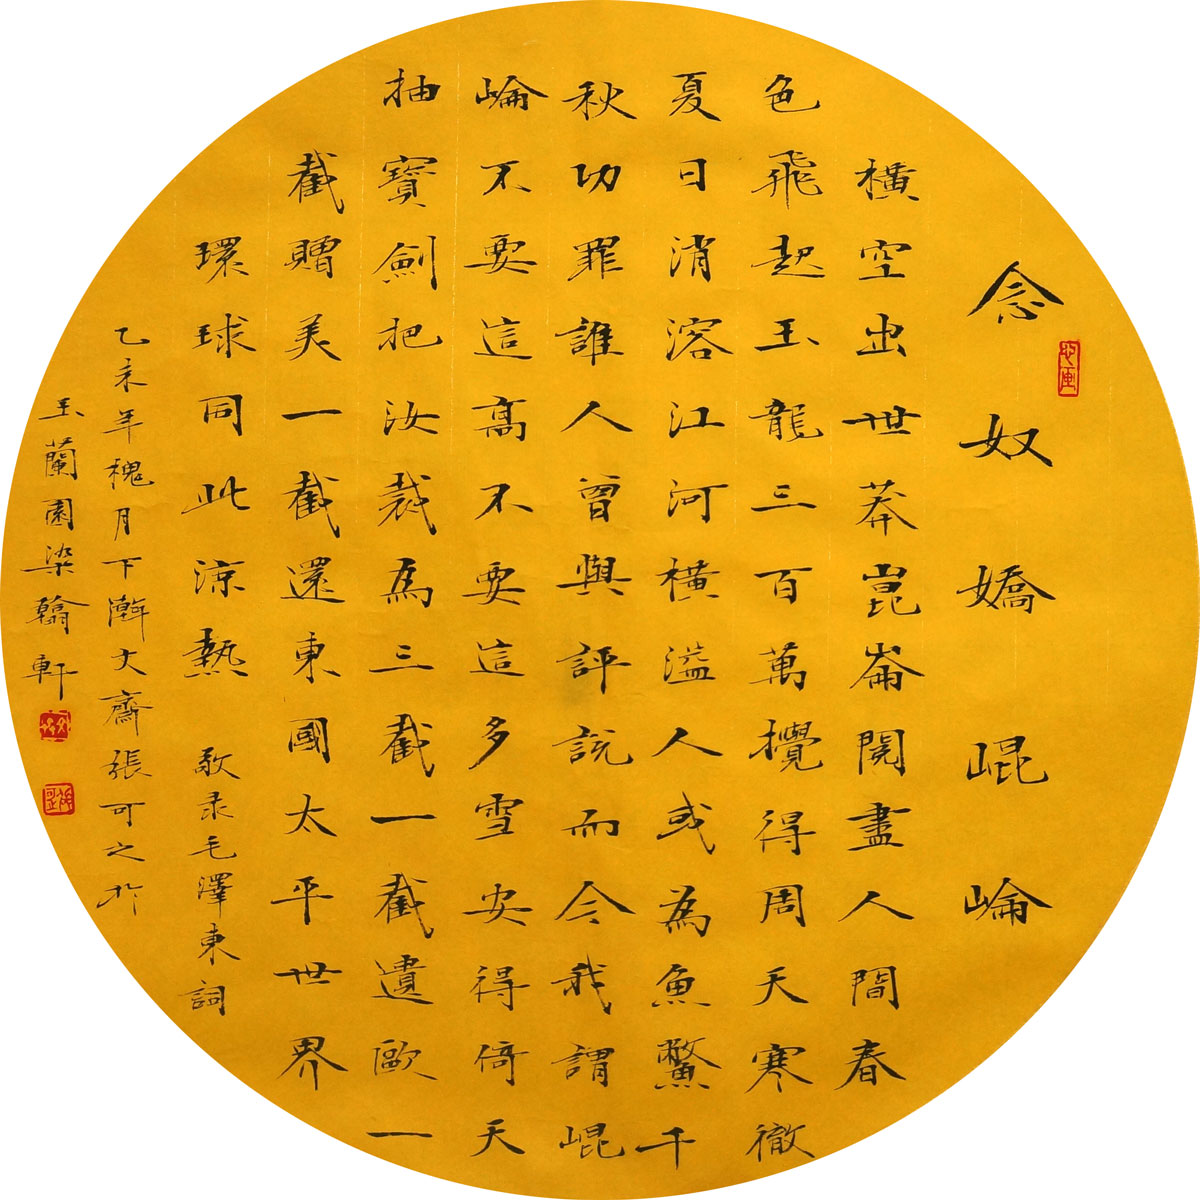 念奴嬌崐崘
橫空出世莽崑崙閱盡人間春
色飛起玉龍三百萬攪得周天寒徹
夏日消溶江河橫溢人或為魚鱉千
秋功罪誰人曾與評說而今我謂崐
崘不要這高不要這多雪安得倚天
抽寶劍把汝裁為三截一截遺歐一
截贈美一截還東國太平世界
環球同此涼熱 敬录毛澤東詞
乙未年槐月下澣大齋張可之於
玉蘭園染翰軒